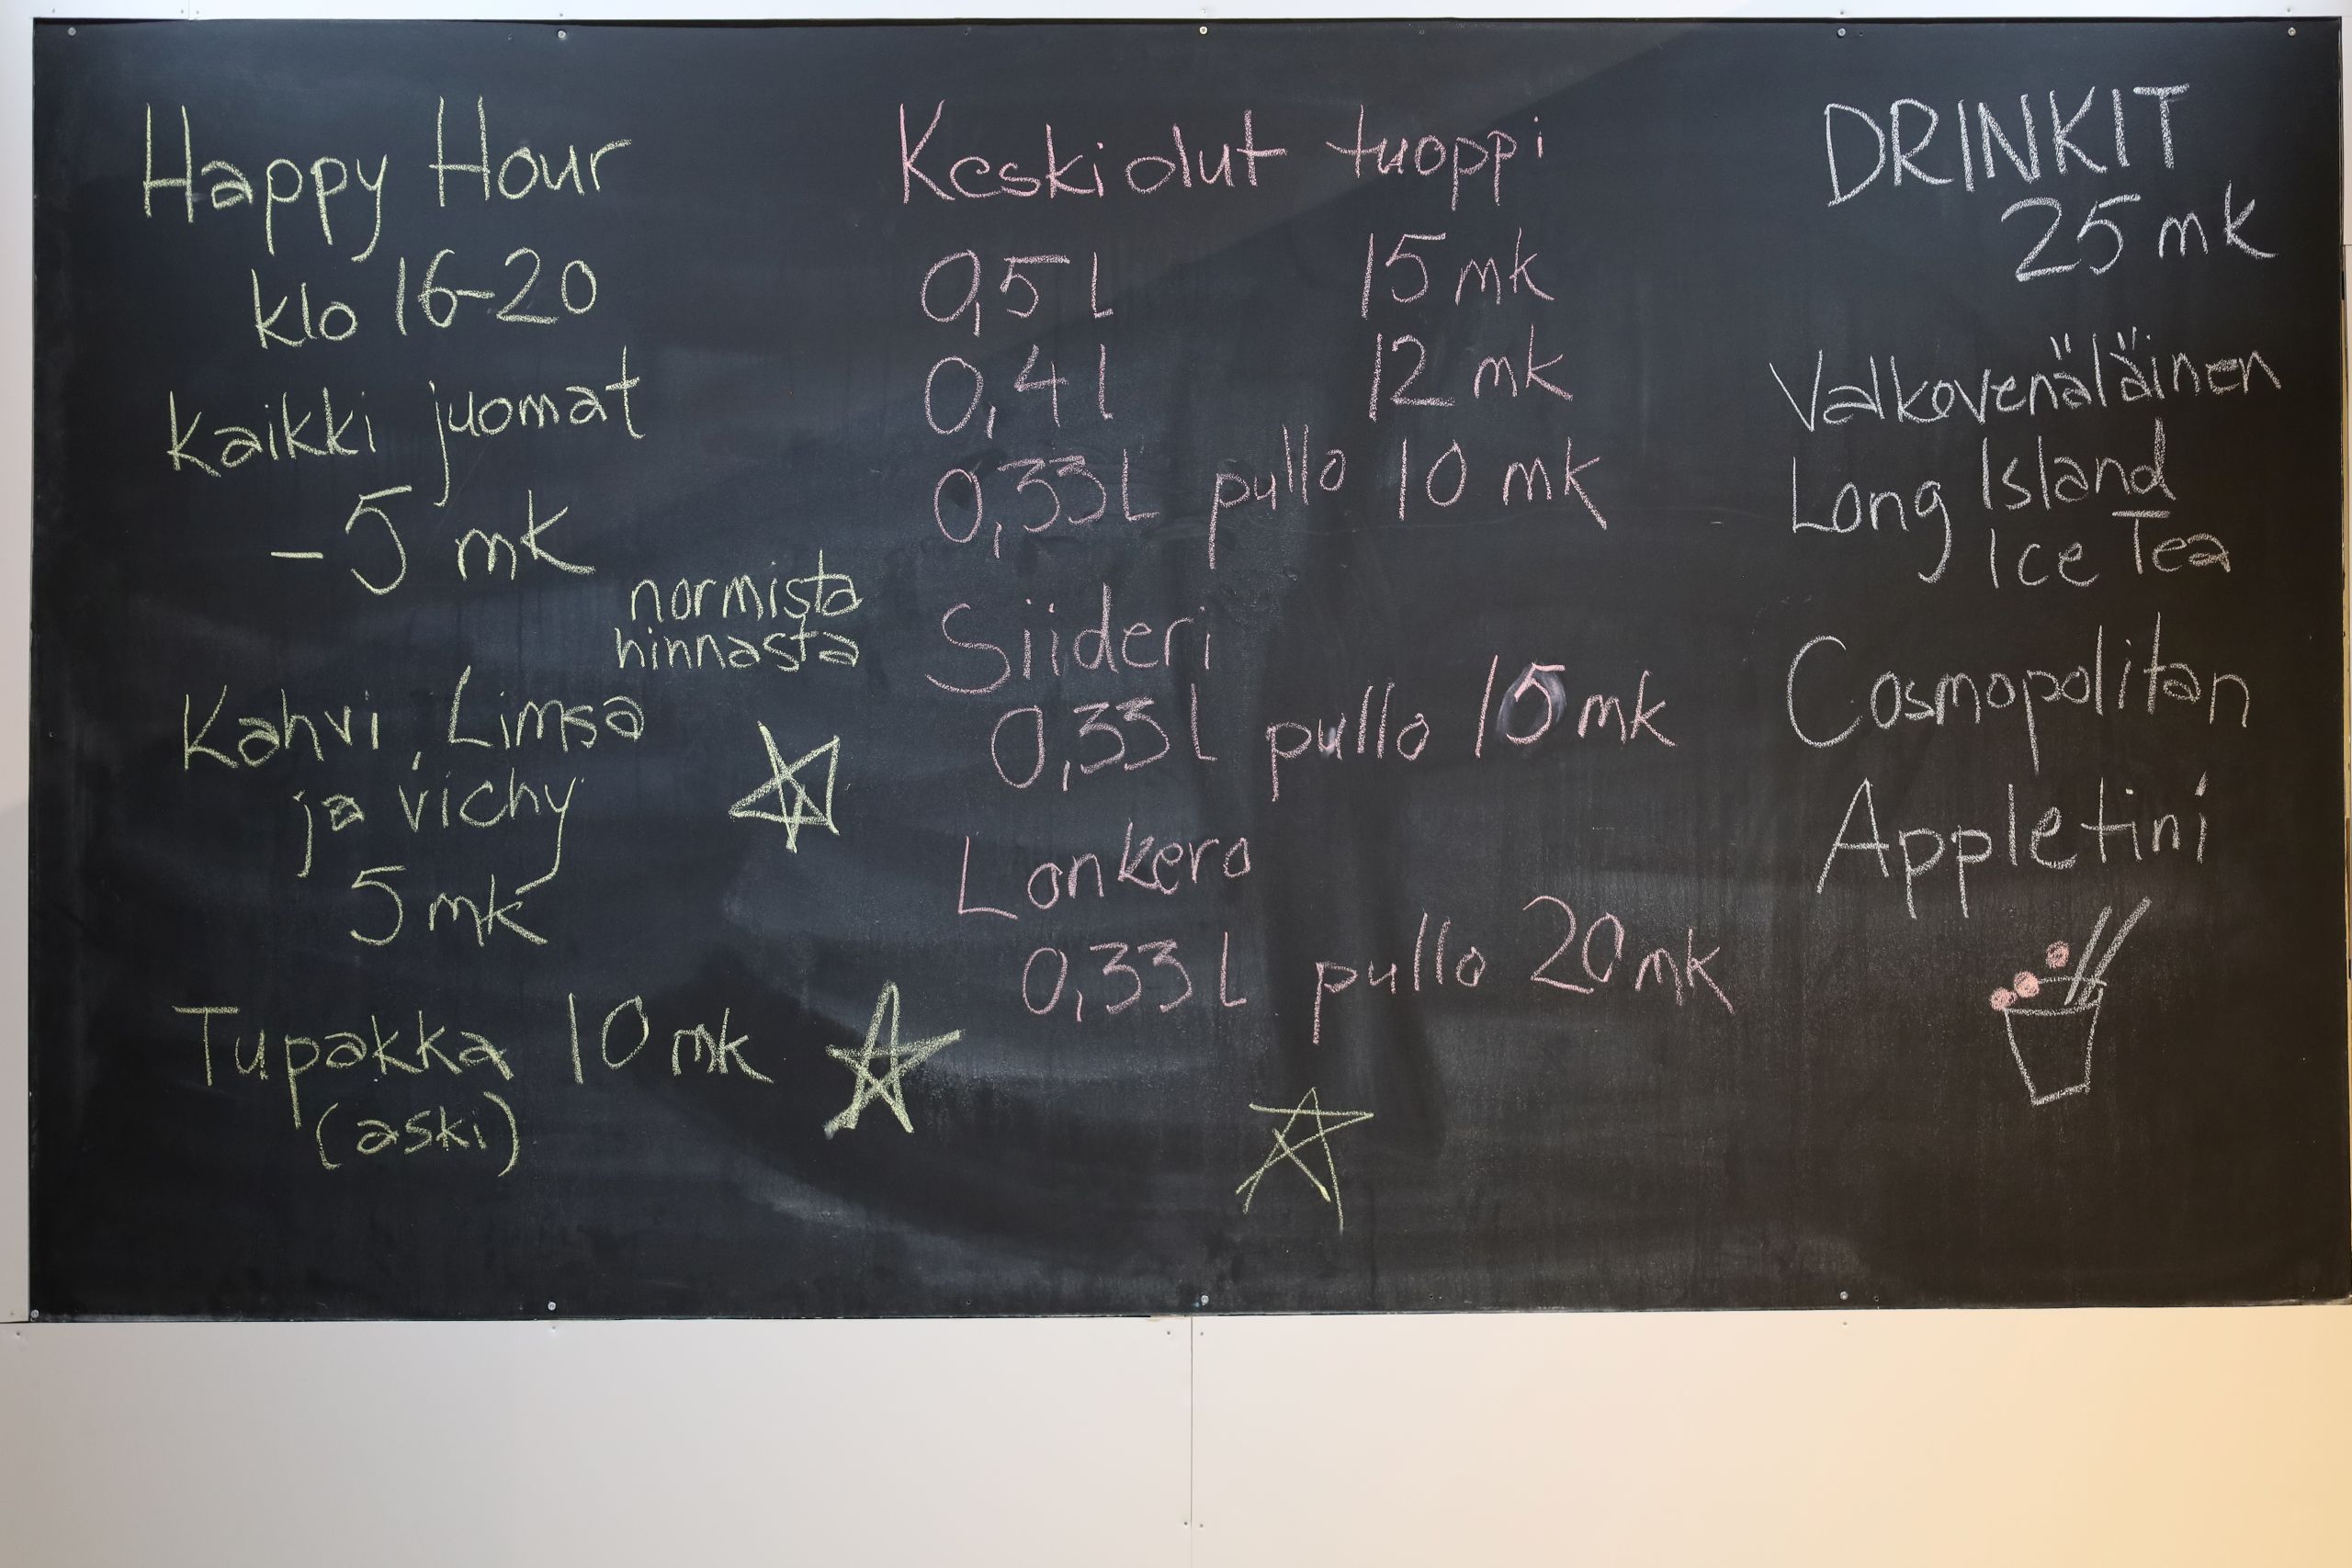 Happy Hour
klo 16-20
kaikki juomat
-5 mk
normista
hinnasta
Kahvi, Limsa
ja vichy
5 mk
Tupakka 10 mk
(aski)
Keskiolut tuoppi
0,5 l 15 mk
0,4 l 12 mk
0,33 l pullo 10 mk
Siideri
0,33 l pullo 15 mk
Lonkero
0,33 l pullo 20 mk
DRINKIT
25 mk
Valkovenäläinen
Long Island
Ice Tea
Cosmopolitan
Appletini